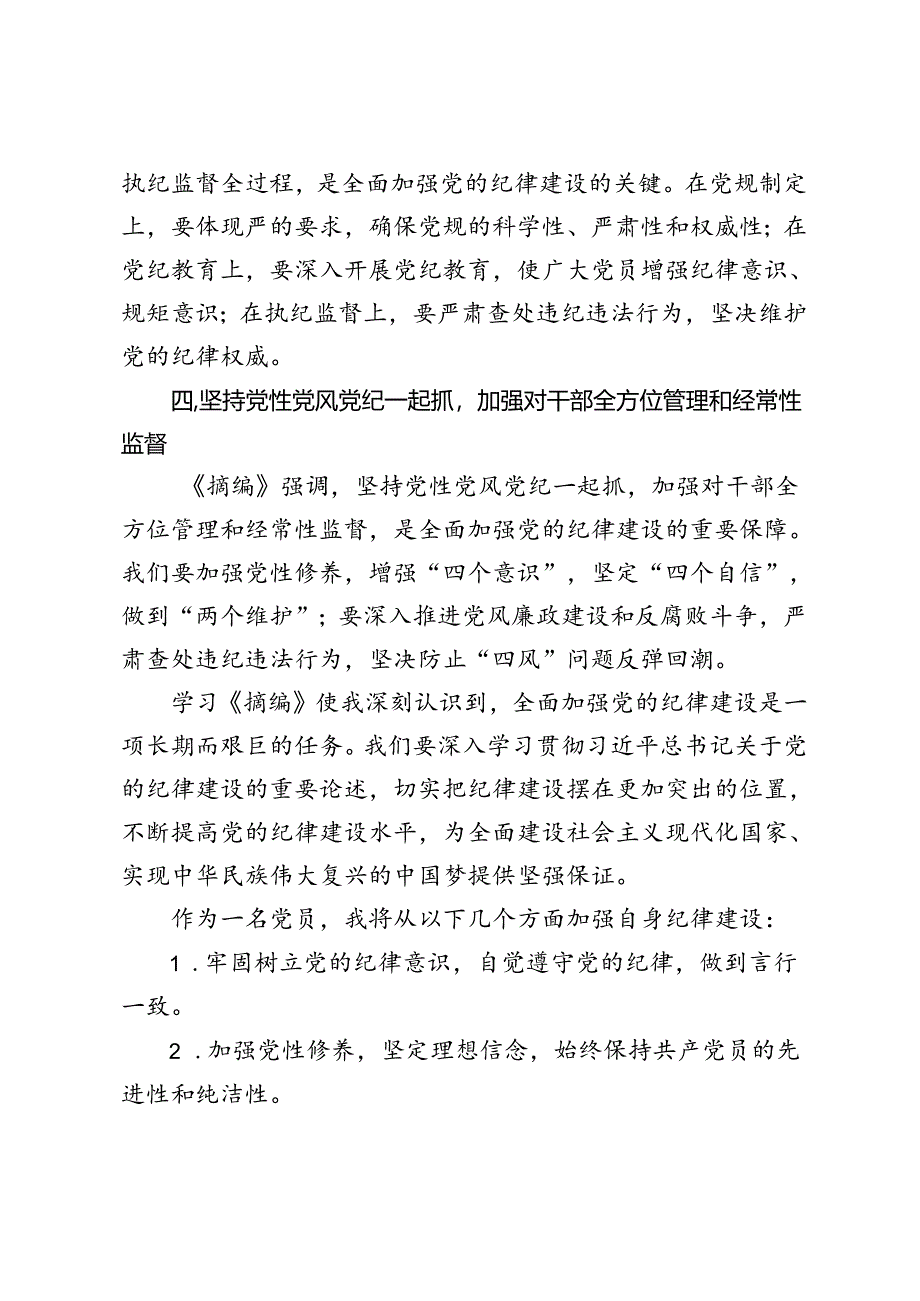 执纪监督全过程，是全面加强党的纪律建设的关键。在党规制定
上，要体现严的要求，确保党规的科学性、严肃性和权威性；在
党纪教育上，要深入开展党纪教育，使广大党员增强纪律意识、
规矩意识；在执纪监督上，要严肃查处违纪违法行为，坚决维护
党的纪律权威。
四,坚持党性党风党纪一起抓，加强对干部全方位管理和经常性
监督
《摘编》强调，坚持党性党风党纪一起抓，加强对干部全
方位管理和经常性监督，是全面加强党的纪律建设的重要保障。
我们要加强党性修养，增强“四个意识”，坚定“四个自信”，
做到“两个维护”；要深入推进党风廉政建设和反腐败斗争，严
肃查处违纪违法行为，坚决防止“四风”问题反弹回潮。
学习《摘编》使我深刻认识到，全面加强党的纪律建设是一
项长期而艰巨的任务。我们要深入学习贯彻习近平总书记关于党
的纪律建设的重要论述，切实把纪律建设摆在更加突出的位置，
不断提高党的纪律建设水平，为全面建设社会主义现代化国家、
实现中华民族伟大复兴的中国梦提供坚强保证。
作为一名党员，我将从以下几个方面加强自身纪律建设：
1 .牢固树立党的纪律意识，自觉遵守党的纪律，做到言行
一致。
2 .加强党性修养，坚定理想信念，始终保持共产党员的先
进性和纯洁性。